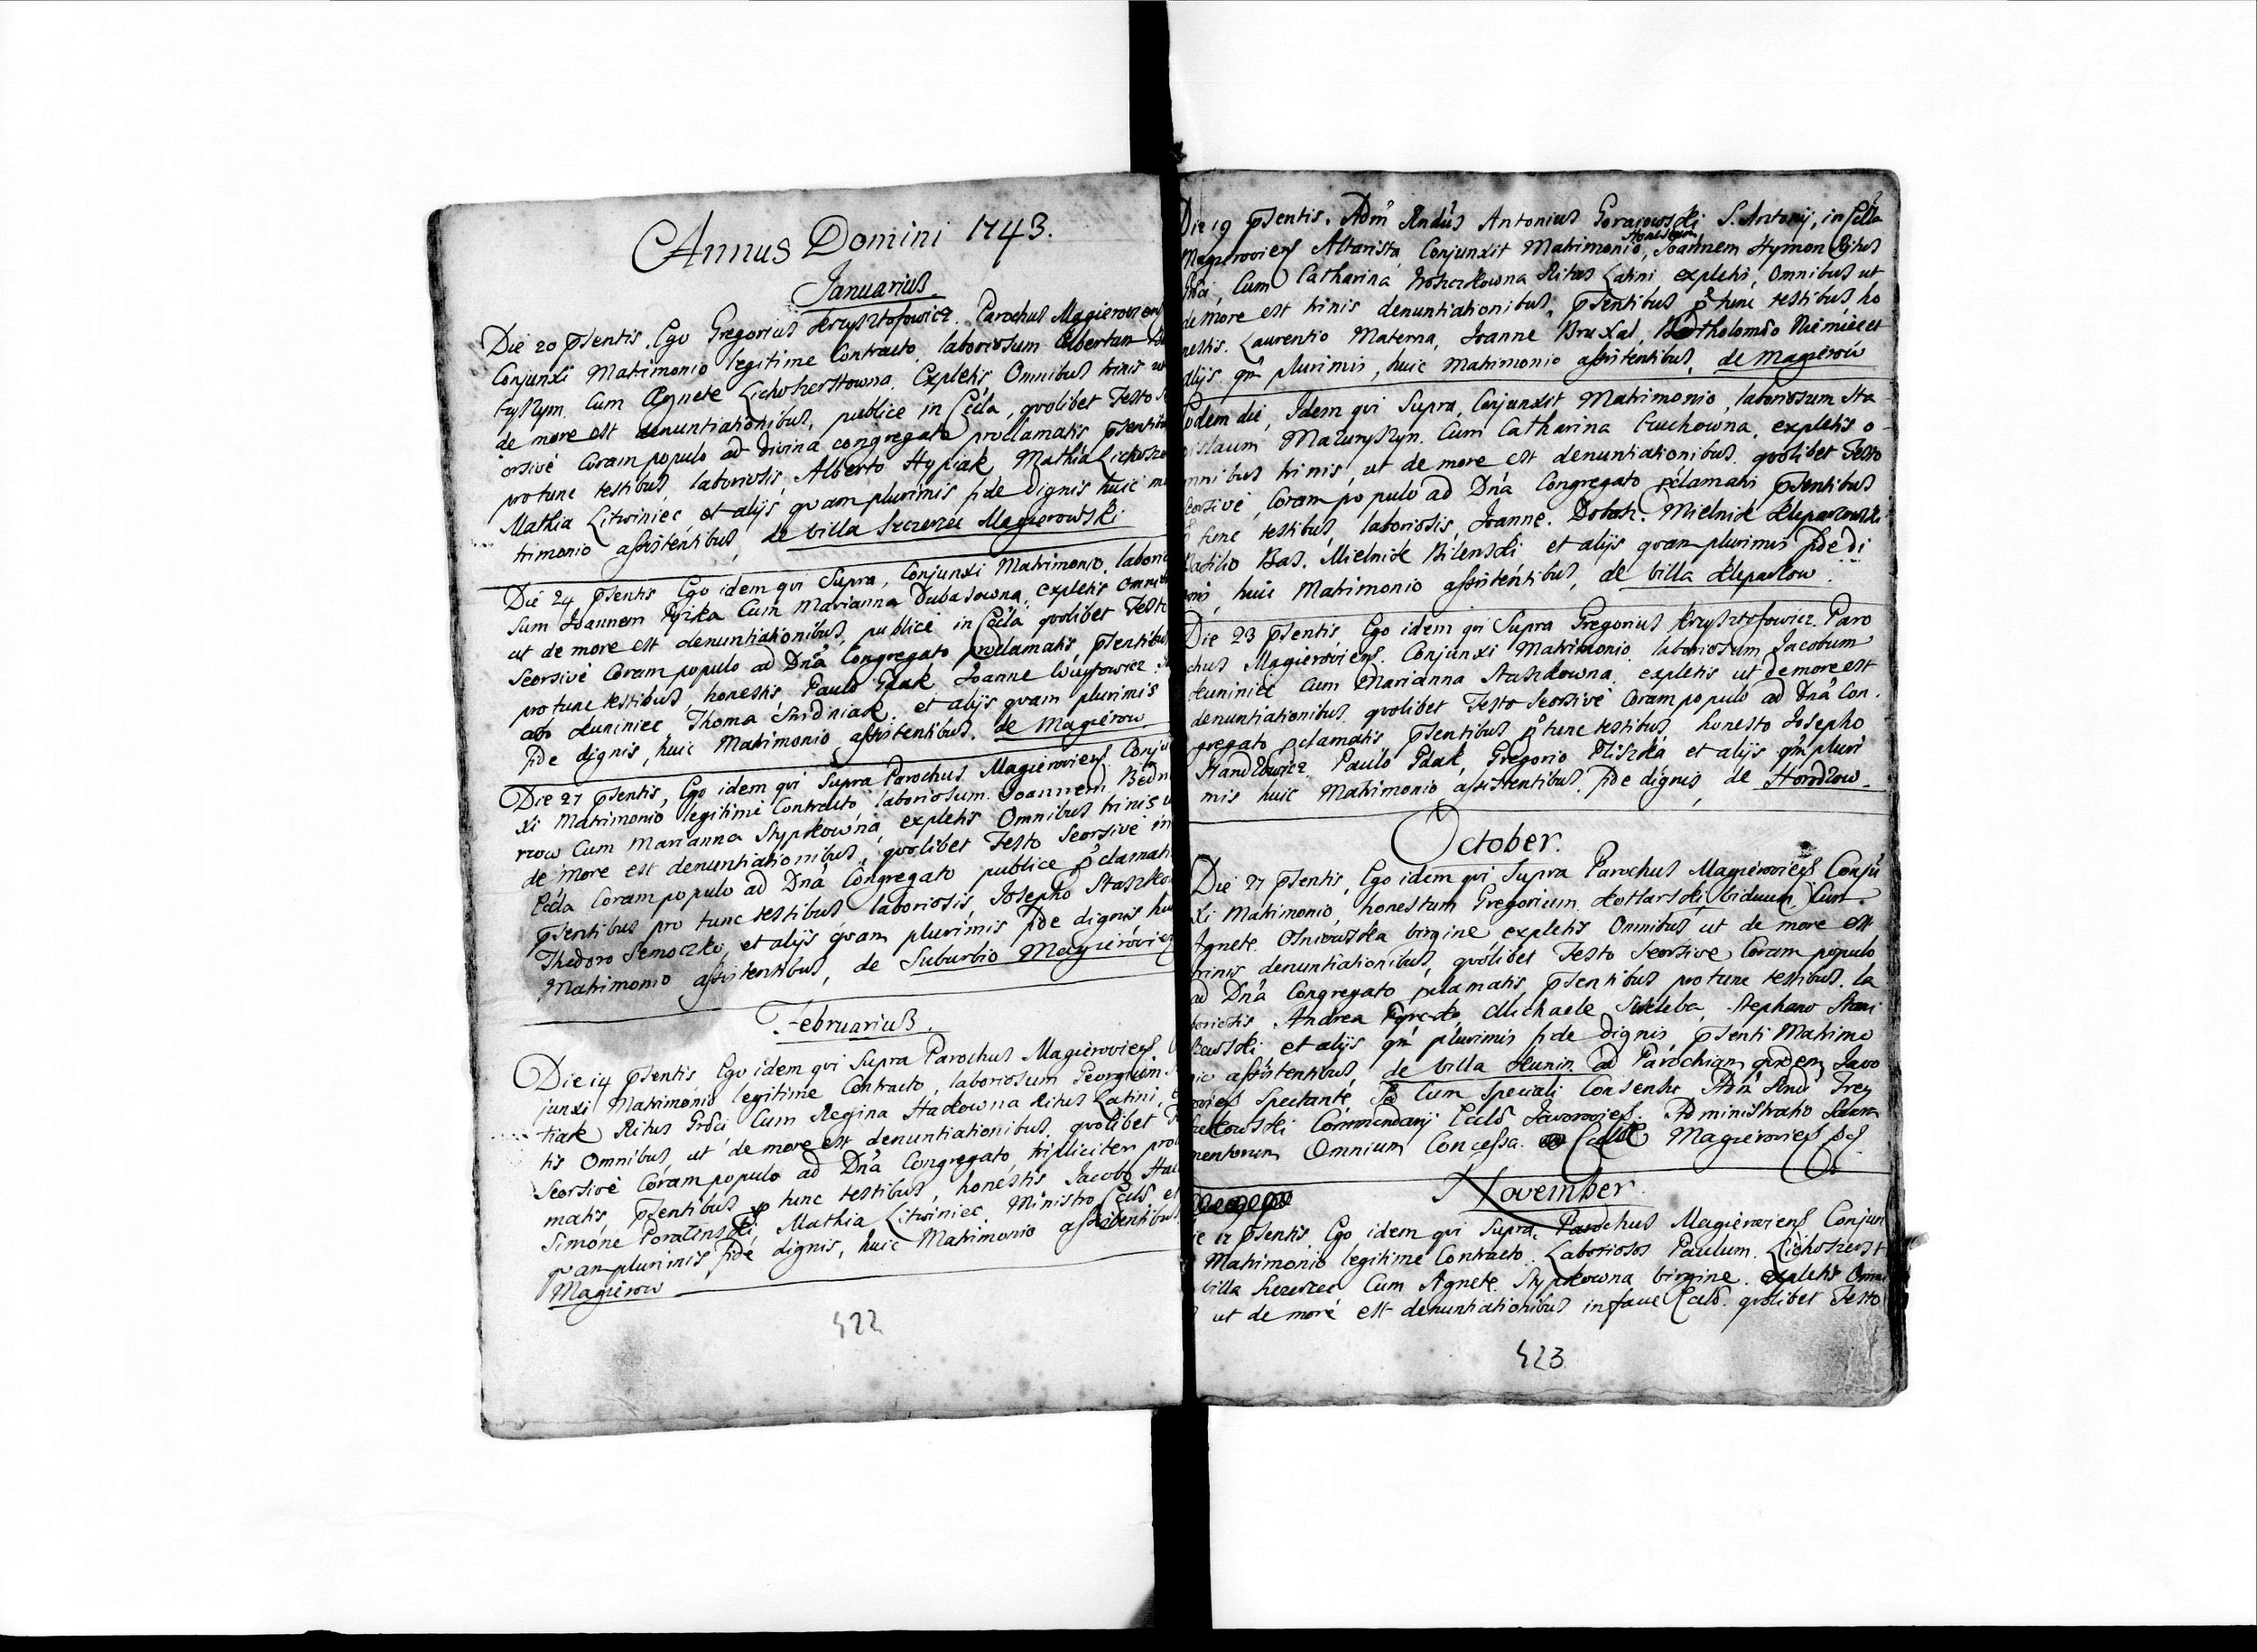 Annus Domini 1743.
Januarius.
Die 20 psentis. Ego Gregorius Krzysztofowicz. Parochus Magierovien
Conjunxi Matrimonio legitime Contracto, laboriosum Albertum
Cum Agnete Lichoszerstowna. Expletis Omnibus trinis
de more est denuntiationibus, publice in Eccla, quolibet Festo
orsive Coram populo ad Divina congregato proclamatis psentibus
pro tunc testibus, laboriosis, Alberto Hyriak, Mathia
Mathia Litwiniec, et alijs quam plurimis fide dignis huic
trimonio assistentibus, de villa Szczerzec Magierowski
Die 24 psentis Ego idem qvi Supra, Conjunxi Matrimonio. laborio
sum Joannem Cum Marianna Dubasowna. expletis
ut de more est denuntiationibus, publice in Eccla quolibet Festo
Seorsive Coram populo ad Dna Congregato proclamatis, psentibus
pro tunc testibus, honestis, Paulo Gdak Joanne
Kuniniec Thoma et alijs quam plurimis
fide dignis, huic Matrimonio assistentibus. de Magierow
Die 27 psentis, Ego idem qvi Supra Parochus Magieroviens. Conju
xi Matrimonio legitime Contracto, laboriosum Joannem Bedn
rzow Cum Marianna Stypkowna, expletis Omnibus trinis
de more est denuntiationibus, quolibet Festo Seorsive in
Eccla Coram populo ad Dna Congregato publice pclamatis
psentibus pro tunc testibus laboriosis, Josepho Staszko
Thedoro Semoczko, et alijs quam plurimis fide dignis
Matrimonio assistentibus, de Suburbio Magierovien
Februarius.
Die 14 psentis Ego idem qvi Supra Parochus Magieroviens.
junxi Matrimonio legitime Contracto, laboriosum Georgium
tiak Ritus Grci Cum Regina Stackowna Ritus Latini,
tis Omnibus, ut de more est denuntiationibus, quolibet
Seorsive Coram populo ad Dna Congregato tripliciter
matis, psentibus p tunc testibus, honestis Jacobo
Simone Mathia Litwiniec Ministro Eccls, et
quam plurimis fide dignis, huic Matrimonio assistentibus
Magierow
422
Die 19 psentis. Adm Rndus Antonius Gorarowski S. Antonij, in Eccla
Magierovien Altarista, Conjunxit Matrimonio, Honestum Joannem Hymon Ritus
Cum Catharina Ritus Latini expletis, Omnibus ut
de more est trinis denuntiationibus, psentibus p tunc testibus, ho
nestis. Laurentio Materna, Joanne Bruxal, Bartholomeo Niemiec et
alijs qm plurimis, huic Matrimonio assistentibus, de Magierow
Eodem die, Idem qvi Supra, Conjunxit Matrimonio, laboriosum Sta
nislaum Mazuryszyn. Cum Catharina expletis o
mnibus trinis, ut de more est denuntiationibus. quolibet Festo
Seorsive, Coram populo ad Dna Congregato pclamatis psentibus
p tunc testibus, laboriosis, Joanne. Mielnik
Basilio Bas. Mielnik Bilenski et alijs quam plurimis fide di
gnis, huic Matrimonio assistentibus, de villa Kleparow.
Die 23 psentis, Ego idem qvi Supra Gregorius Krzysztofowicz. Paro
chus Magieroviens. Conjunxi Matrimonio. laboriosum Jacobum
Kuniniec Cum Marianna Staszkowna. expletis ut de more est
denuntiationibus. quolibet Festo Seorsive Coram populo ad Dna Con.
gregato pclamatis psentibus p tunc testibus, honesto Josepho
Paulo Gdak, Gregorio Fliszka et alijs qm pluri
mis huic Matrimonio assistentibus. fide dignis, de
October.
Die 27 psentis, Ego idem qvi Supra Parochus Magieroviens Conju
xi Matrimonio, honestum Gregorium. Kotlarski viduum Cum.
Agnete. virgine expletis Omnibus, ut de more est
trinis, denuntiationibus, quolibet Festo Seorsive Coram populo
ad Dna Congregato pclamatis, psentibus pro tunc testibus. la
boriosis. Andrea Michaele Stephano
et alijs qm plurimis fide dignis, psenti Matrimo
nio assistentibus, de villa Kunin. ad Parochiam qvdem Javo
roviens Spectante, Cum Speciali Consensu Adm Rndi
Commendarij Eccls Javoroviens. Administratio Sacra
mentorum Omnium Concessa. Magieroviens
November.
12 psentis Ego idem qvi Supra. Parochus Magieroviens Conjun
Matrimonio legitime Contracto. Laboriosos Paulum. Lichoszerst
villa Szczerzec Cum Agnete. Stypkowna virgine. expletis
ut de more est denuntiationibus in facie Eccls. quolibet Festo
423